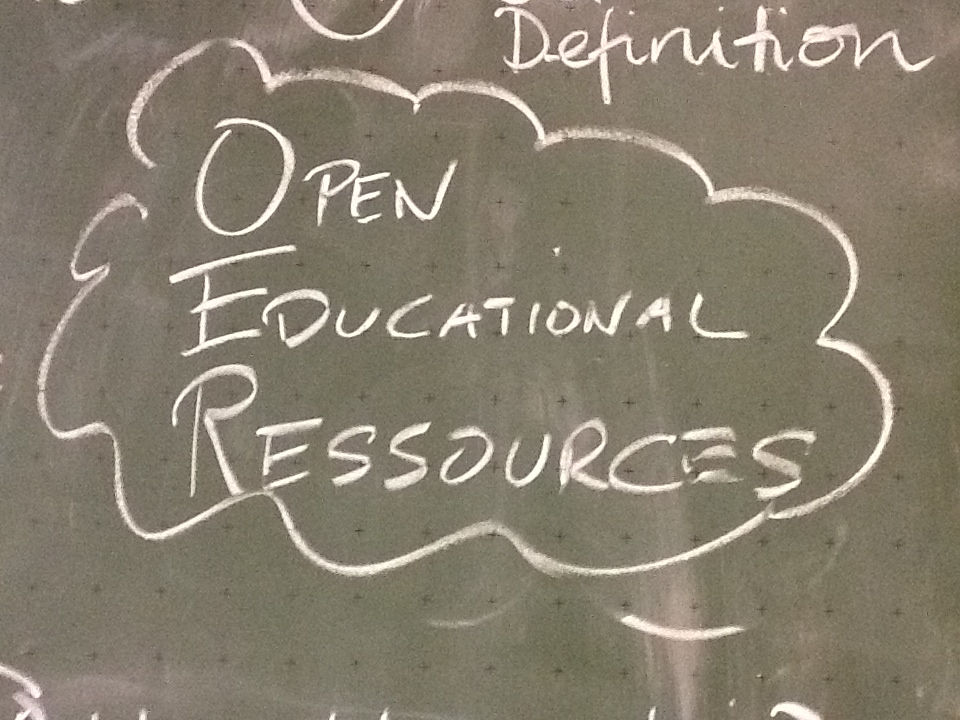 Definition
OPEN
EDUCATIONAL
RESSOURCES